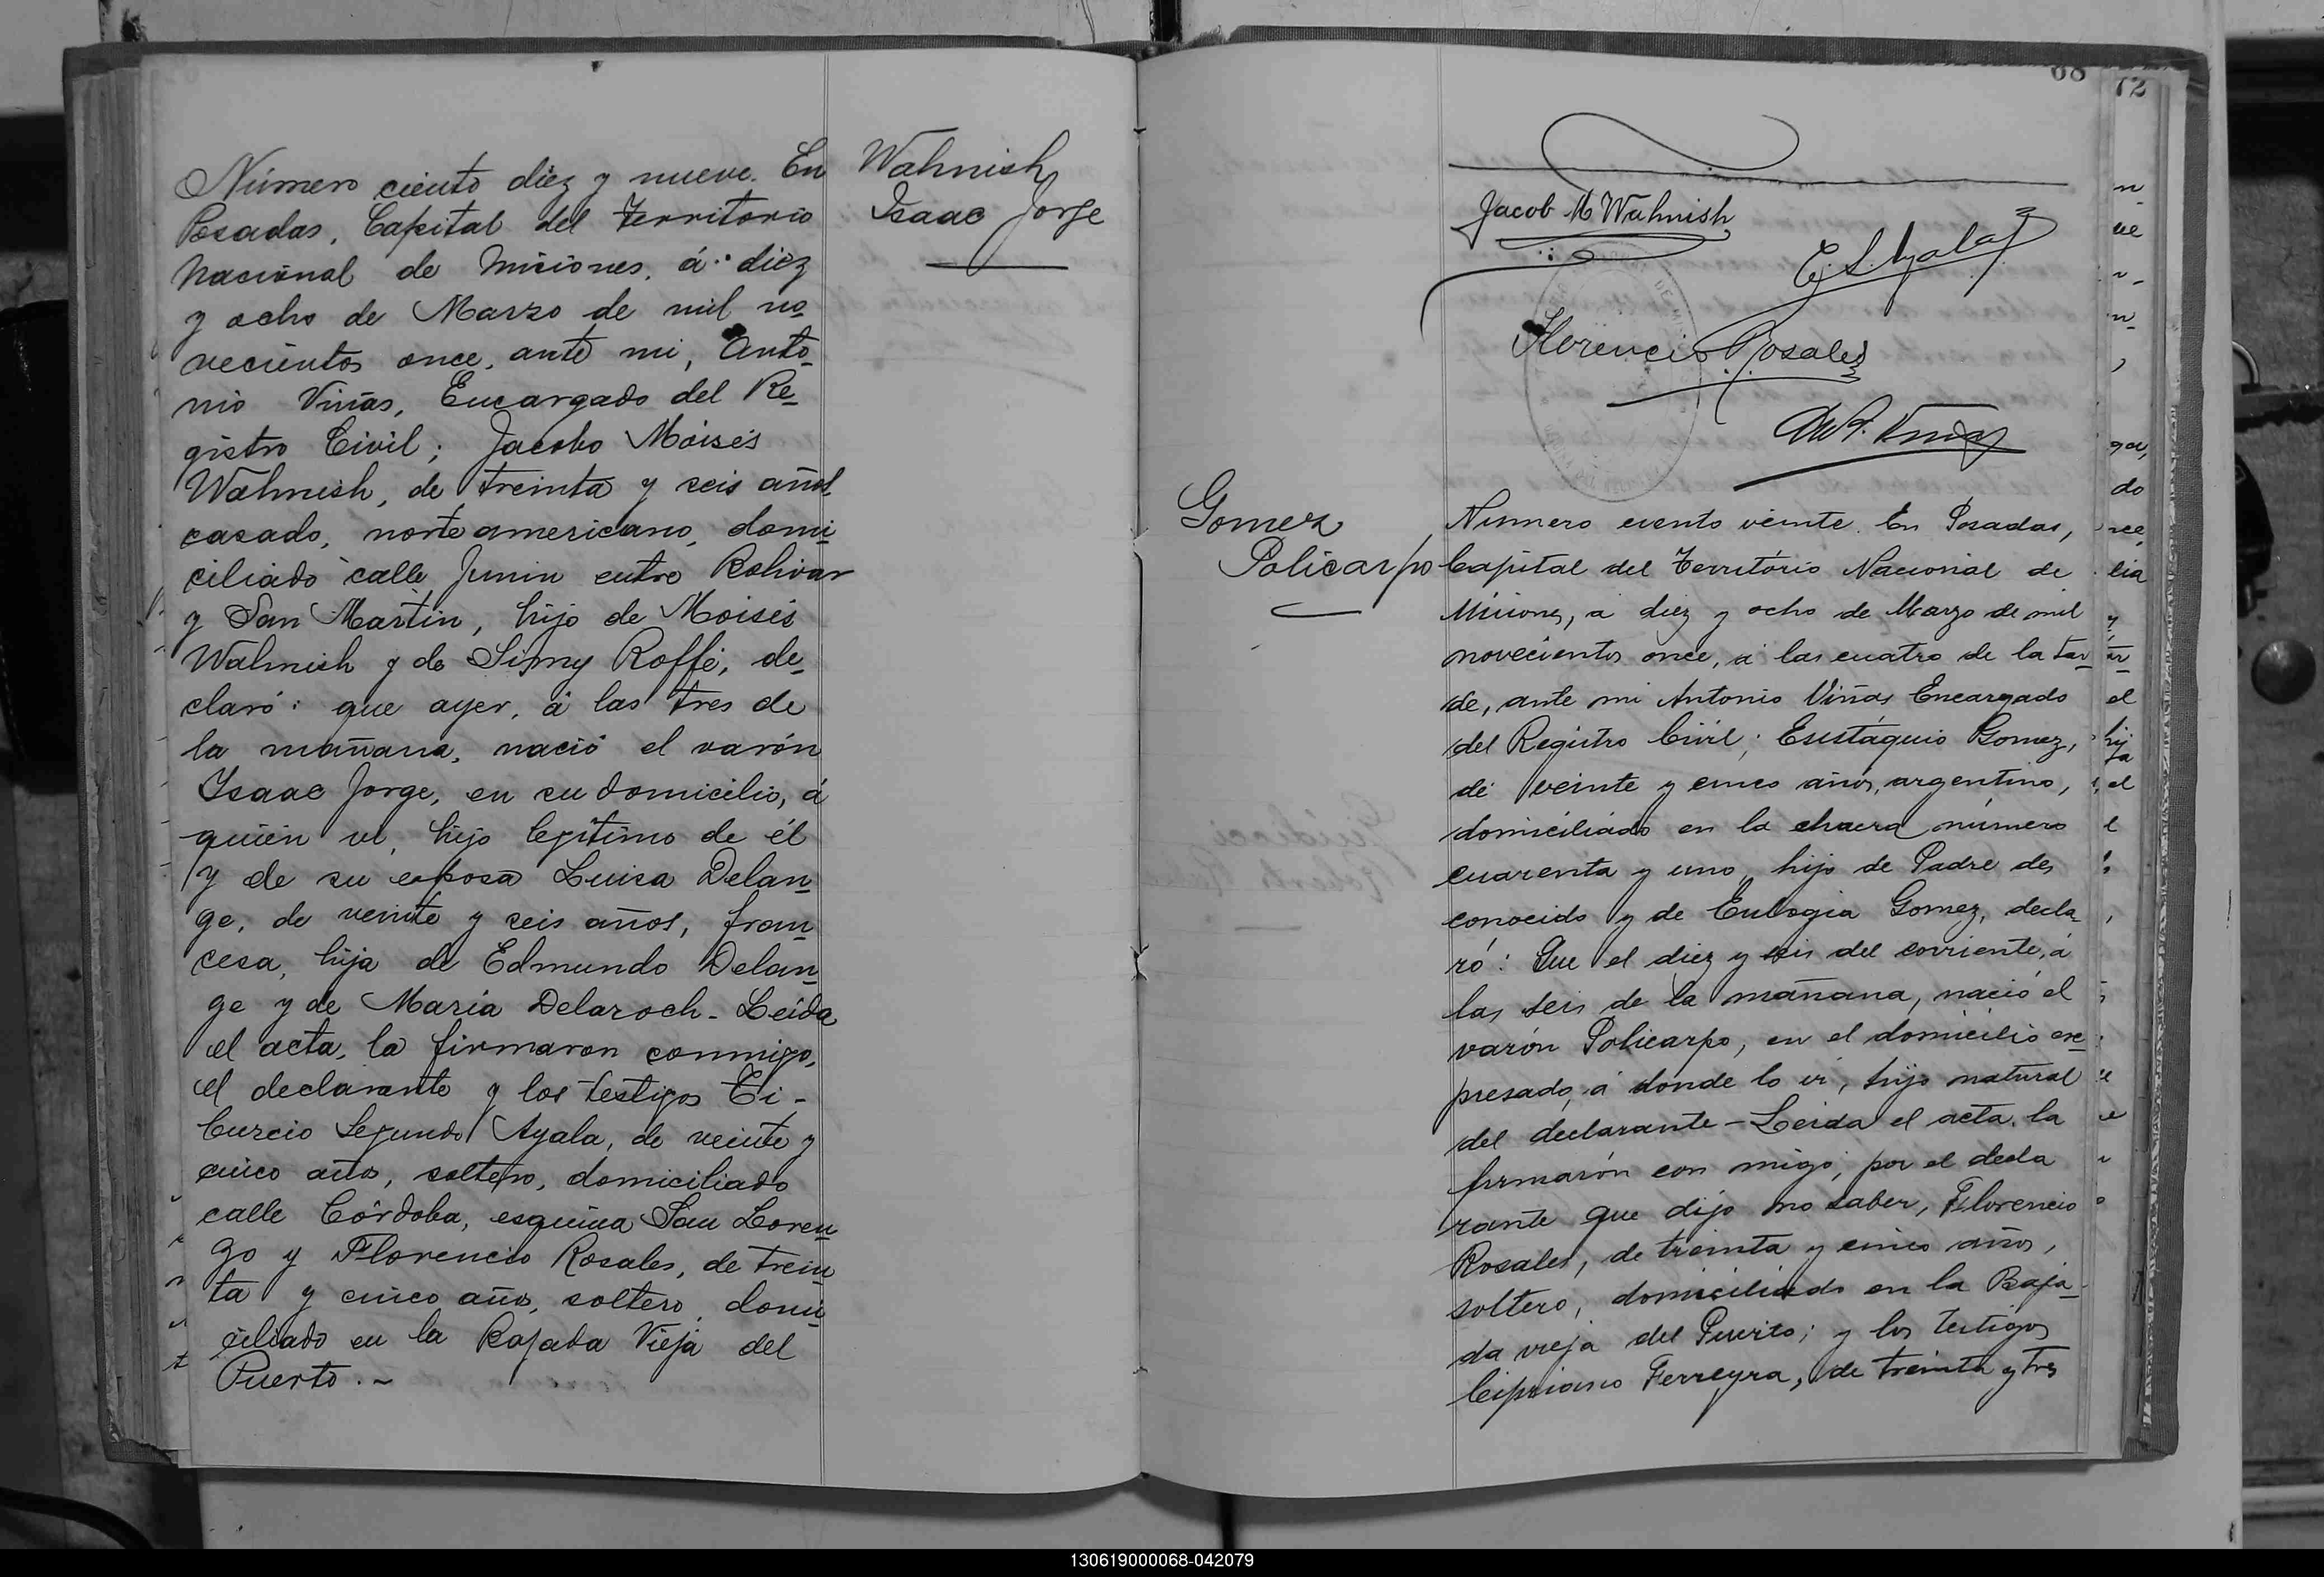 Número ciento diez y nueve. En
Posadas, Capital del Territorio
Nacional de Misiones, á diez
y ocho de Marzo de mil no_
vecientos once, ante mi, Anto_
nio Viñas, Encargado del Re_
gistro Civil; Jacobo Moisés
Wahnish, de treinta y seis años,
casado, norteamericano, domi_
ciliado calle Junin entre Bolivar
y San Martin, hijo de Moisés
Wahnish y de Simy Roffé, de_
claró: que ayer, á las tres de
la mañana, nació el varón
Isaac Jorge, en su domicilio, á
quien vi, hijo legítimo de él
y de su esposa Luisa Delan_
ge, de veinte y seis años, fran_
cesa, hija de Edmundo Delan_
ge y de Maria Delaroch_ Leida
el acta, la firmaron conmigo,
el declarante y los testigos Ti_
burcio Segundo Ayala, de veinte y
cinco años, soltero, domiciliado
calle Córdoba, esquina San Loren_
zo y Florencio Rosales, de trein_
ta y cinco años, soltero, domi_
ciliado en la Bajada Vieja del
Puerto.~
Wahnish
Isaac Jorge
68
72
Jacob M Wahnish
Florencio Rosales
Gomez
Policarpo
Número ciento veinte. En Posadas,
Capital del Territorio Nacional de
Misiones, á diez y ocho de Marzo de mil
novecientos once, á las cuatro de la tar_
de, ante mi Antonio Viñas Encargado
del Registro Civil; Eustáquio Gomez,
de veinte y cinco años, argentino,
domiciliado en la chacra número
cuarenta y uno, hijo de Padre des
conocido y de Eulogia Gomez, decla_
ró: Que el diez y seis del corriente, á
las seis de la mañana, nació el
varón Policarpo, en el domicilio ex_
presado, á donde lo ví, hijo natural
del declarante - Leida el acta, la
firmarón con migo, por el decla
rante que dijo no saber, Florencio
Rosales, de treinta y cinco años,
soltero, domiciliado en la Baja_
da vieja del Puerto; y los testigos
Cipriano Ferreyra, de treinta y tres
130619000068-042079